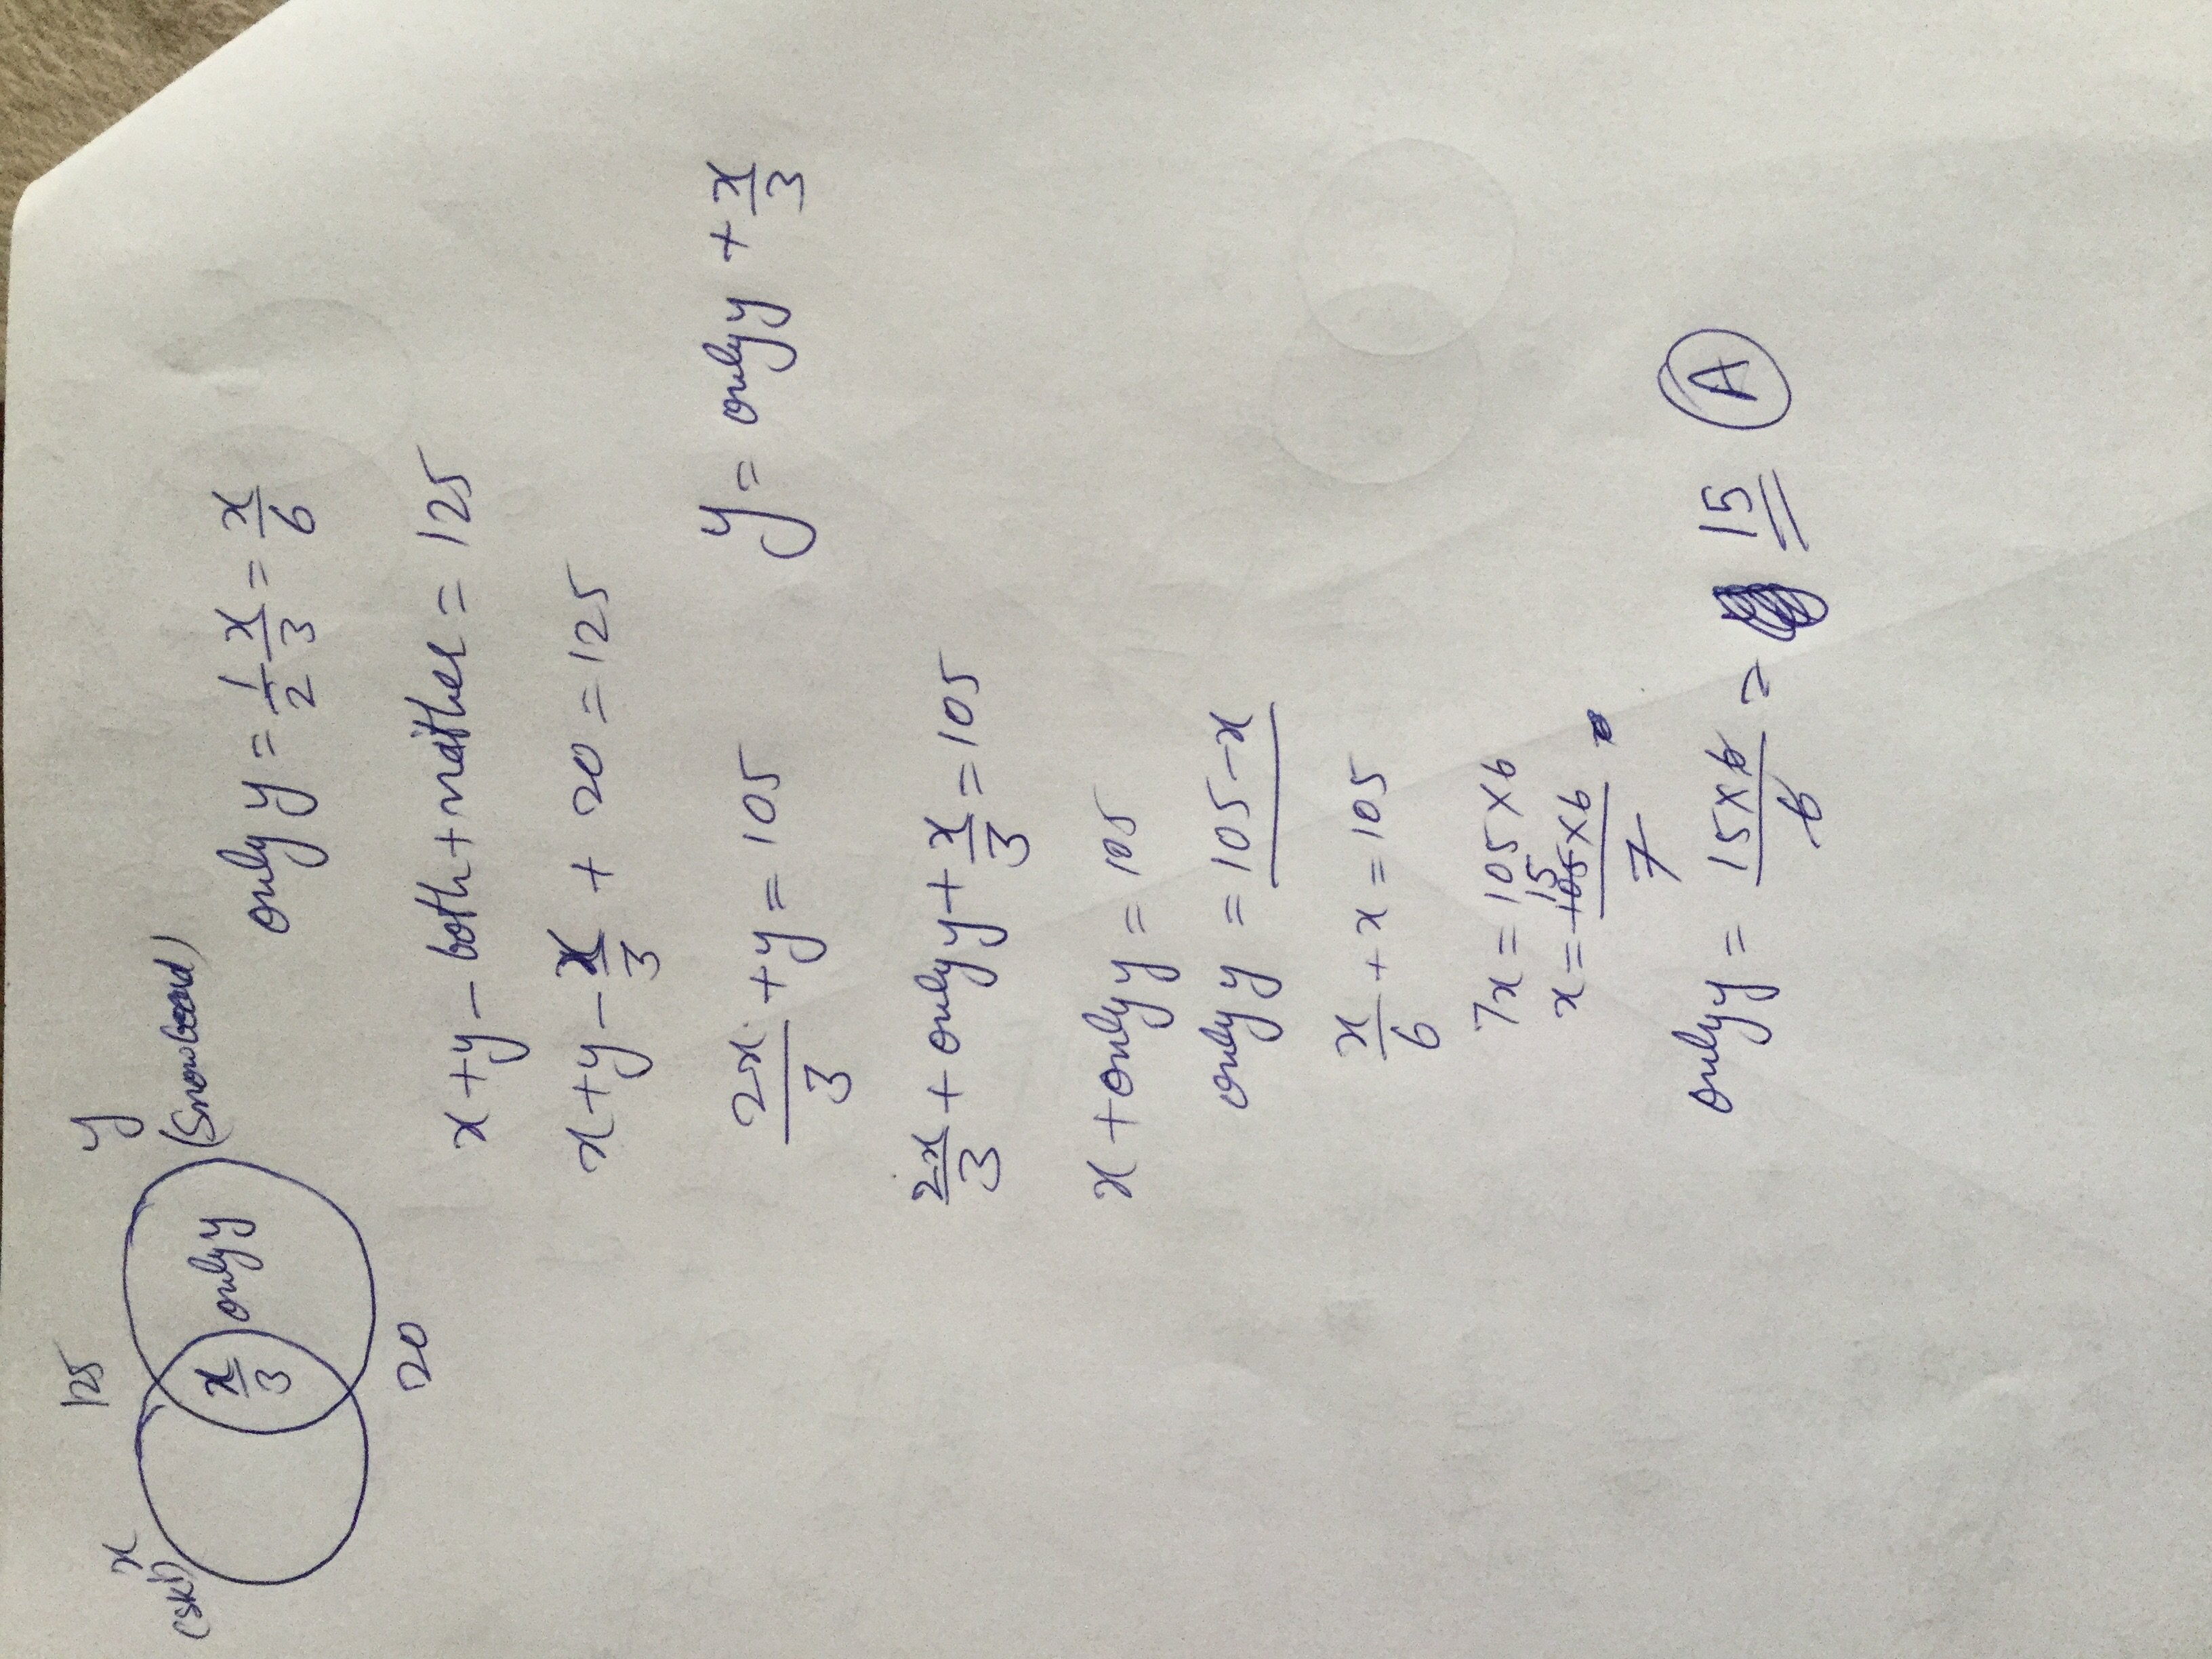 125
x
(Ski)
y
(Snowboard)
x/3
only y
20
only y = 1/2 x/3 = x/6
x + y - both + neither = 125
x + y - x/3 + 20 = 125
2x/3 + y = 105
y = only y + x/3
2x/3 + only y + x/3 = 105
x + only y = 105
only y = 105 - x
x/6 + x = 105
7x = 105 x 6
15
x = 105 x 6 / 7
only y = 15 x 6 / 6 = 15 A